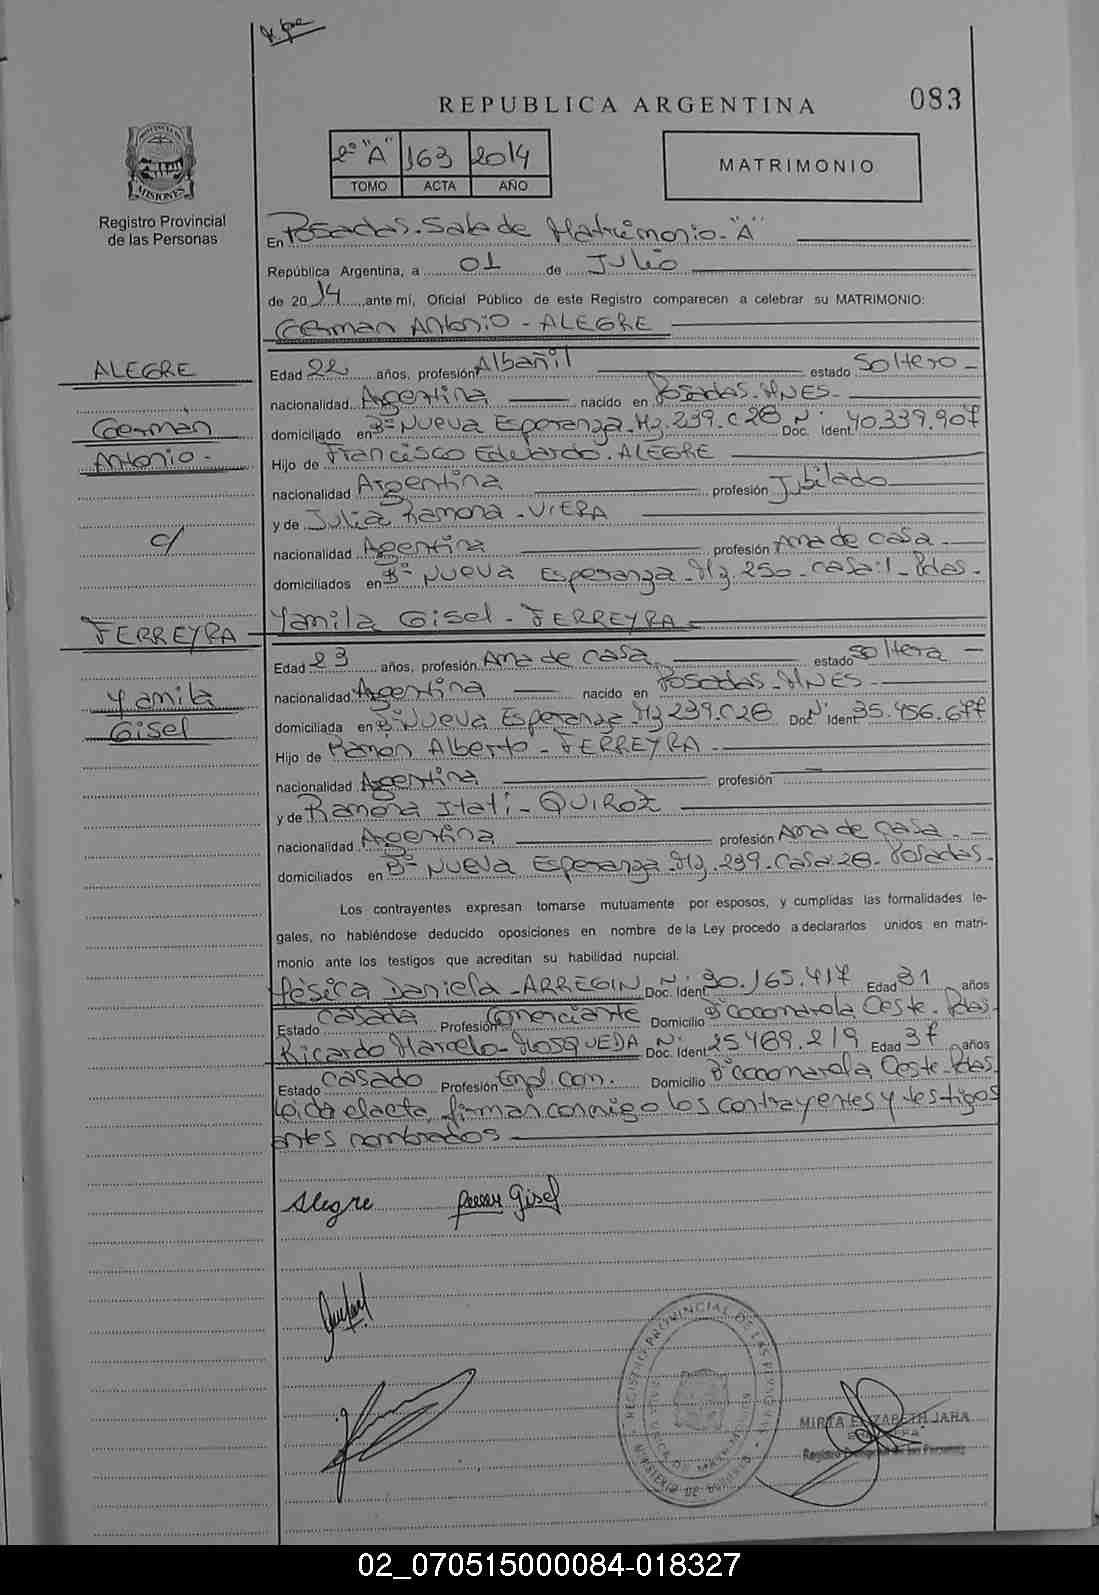 REPUBLICA ARGENTINA
083
2º "A" 163 2014
TOMO ACTA AÑO
MATRIMONIO
MISIONES
Registro Provincial
de las Personas
En Posadas. Sala de Matrimonio. "A"
República Argentina, a 01 de Julio
de 2014 ,ante mí, Oficial Público de este Registro comparecen a celebrar su MATRIMONIO:
German Antonio - ALEGRE
ALEGRE
Edad 22 años, profesión Albañil estado Soltero -
nacionalidad Argentina nacido en Posadas. MNES.
German
domiciliado en Bº Nueva Esperanza. Mz. 239. C 28. Doc. Ident. Nº 40.339.907
Antonio.
Hijo de Francisco Eduardo. ALEGRE
nacionalidad Argentina profesión Jubilado
y de Julia Ramona - VIERA
c/
nacionalidad Agentina profesión Ama de casa.
domiciliados en Bº Nueva Esperanza. Mz. 250. casa: 1. Pdas.
FERREYRA
Yamila Gisel - FERREYRA
Edad 23 años, profesión Ama de casa estado soltera -
Yamila
nacionalidad Argentina nacido en Posadas. MNES.
Gisel
domiciliada en Bº Nueva Esperanza Mz 239. C 28 Doc. Ident. Nº 35.456.677
Hijo de Ramon Alberto - FERREYRA
nacionalidad Argentina profesión
y de Ramona Itati - QUIROZ
nacionalidad Argentina profesión Ama de casa. -
domiciliados en Bº Nueva Esperanza. Mz. 239. Casa: 28. Posadas.
Los contrayentes expresan tomarse mutuamente por esposos, y cumplidas las formalidades le-
gales, no habiéndose deducido oposiciones en nombre de la Ley procedo a declararlos unidos en matri-
monio ante los testigos que acreditan su habilidad nupcial.
Yésica Daniela - ARREGIN Doc. Ident. Nº 30.165.417 Edad 31 años
Estado Casada Profesión Comerciante Domicilio Bº Cocomarola Oeste. Pdas.
Ricardo Marcelo - MOSQUEDA Doc. Ident. Nº 25.489.219 Edad 37 años
Estado Casado Profesión Empl. Com. Domicilio Bº Cocomarola Oeste. Pdas.
Leida el acta, firman conmigo los contrayentes y testigos
antes nombrados
Alegre Gisel
REGISTRO PROVINCIAL DE LAS PERSONAS
MINISTERIO DE GOBIERNO
MIRTA ELIZABETH JARA
Registro Provincial de las Personas
02_070515000084-018327